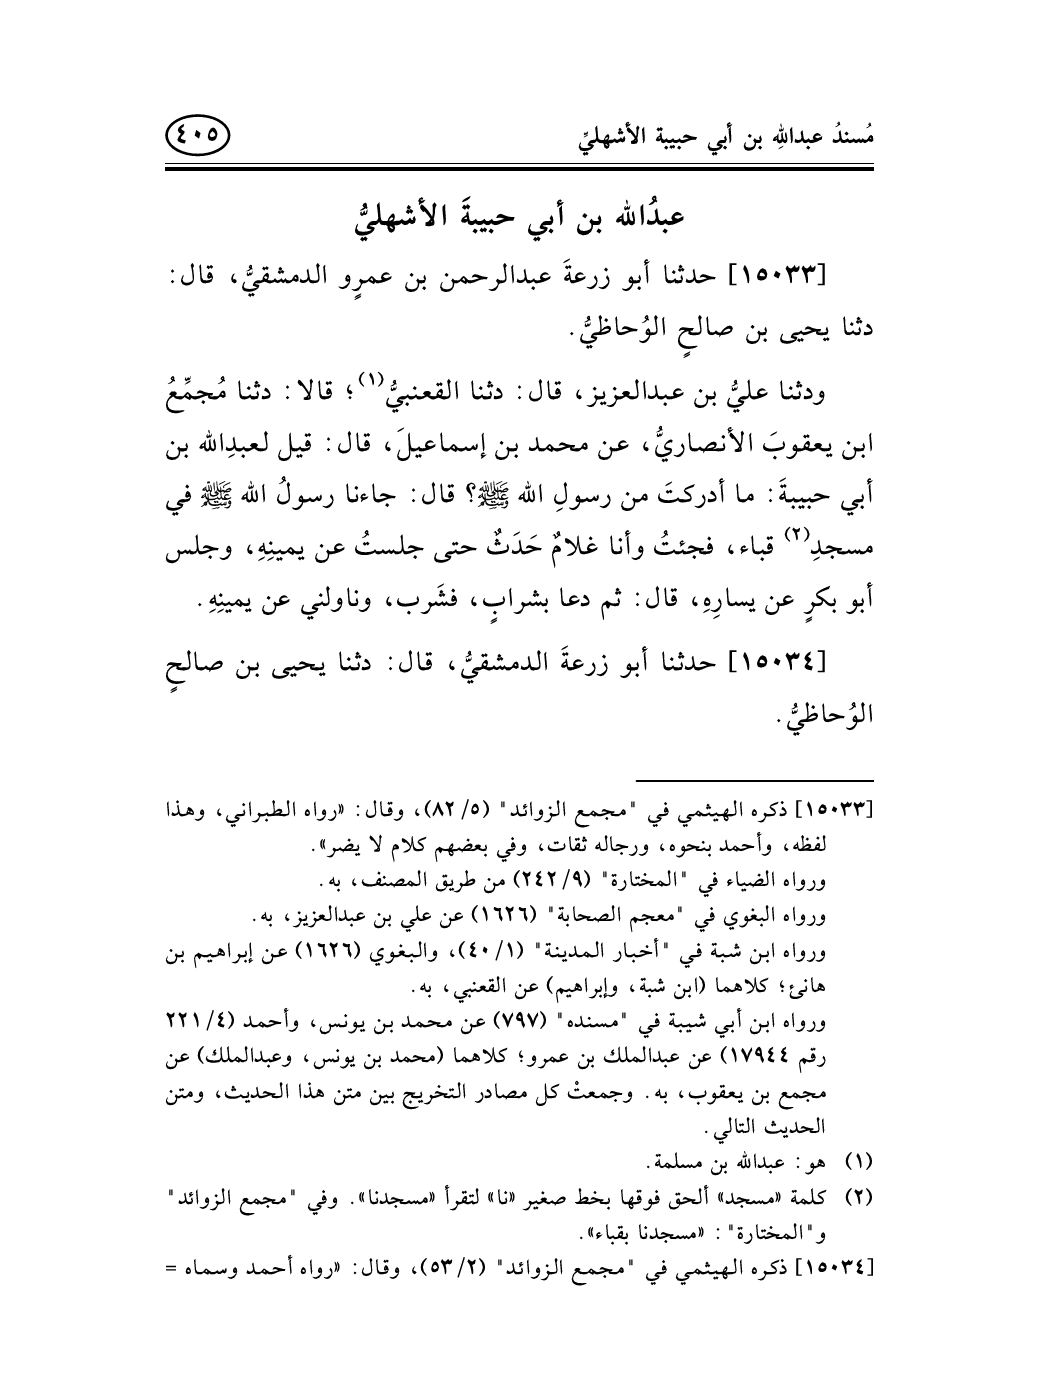 مُسندُ عبداللهِ بن أبي حبيبة الأشهليِّ
٤٠٥
عبدُالله بن أبي حبيبةَ الأشهليُّ
[١٥٠٣٣] حدثنا أبو زرعةَ عبدالرحمن بن عمرٍو الدمشقيُّ، قال:
دثنا يحيى بن صالحٍ الوُحاظيُّ.
ودثنا عليُّ بن عبدالعزيز، قال: دثنا القعنبيُّ(١)؛ قالا: دثنا مُجمِّعُ
ابن يعقوبَ الأنصاريُّ، عن محمد بن إسماعيلَ، قال: قيل لعبدِالله بن
أبي حبيبةَ: ما أدركتَ من رسولِ الله ﷺ؟ قال: جاءنا رسولُ الله ﷺ في
مسجدِ(٢) قباء، فجئتُ وأنا غلامٌ حَدَثٌ حتى جلستُ عن يمينِهِ، وجلس
أبو بكرٍ عن يسارِهِ، قال: ثم دعا بشرابٍ، فشَرب، وناولني عن يمينِهِ.
[١٥٠٣٤] حدثنا أبو زرعةَ الدمشقيُّ، قال: دثنا يحيى بن صالحٍ
الوُحاظيُّ.
[١٥٠٣٣] ذكره الهيثمي في "مجمع الزوائد" (٥/ ٨٢)، وقال: «رواه الطبراني، وهذا
لفظه، وأحمد بنحوه، ورجاله ثقات، وفي بعضهم كلام لا يضر».
ورواه الضياء في "المختارة" (٩/ ٢٤٢) من طريق المصنف، به.
ورواه البغوي في "معجم الصحابة" (١٦٢٦) عن علي بن عبدالعزيز، به.
ورواه ابن شبة في "أخبار المدينة" (١/ ٤٠)، والبغوي (١٦٢٦) عن إبراهيم بن
هانئ؛ كلاهما (ابن شبة، وإبراهيم) عن القعنبي، به.
ورواه ابن أبي شيبة في "مسنده" (٧٩٧) عن محمد بن يونس، وأحمد (٤/ ٢٢١
رقم ١٧٩٤٤) عن عبدالملك بن عمرو؛ كلاهما (محمد بن يونس، وعبدالملك) عن
مجمع بن يعقوب، به. وجمعتْ كل مصادر التخريج بين متن هذا الحديث، ومتن
الحديث التالي.
(١) هو: عبدالله بن مسلمة.
(٢) كلمة «مسجد» ألحق فوقها بخط صغير «نا» لتقرأ «مسجدنا». وفي "مجمع الزوائد"
و"المختارة": «مسجدنا بقباء».
[١٥٠٣٤] ذكره الهيثمي في "مجمع الزوائد" (٢/ ٥٣)، وقال: «رواه أحمد وسماه =